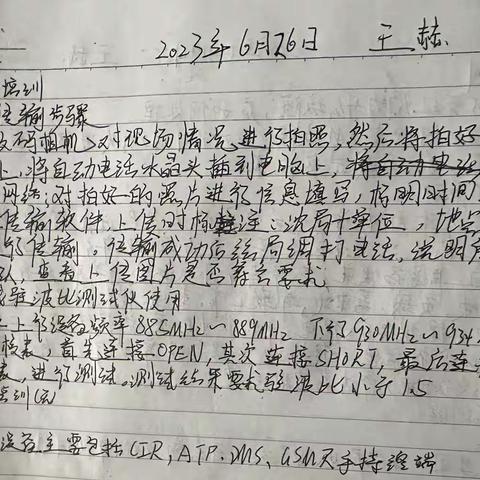 2023年6月26日 王赫
培训
传输步骤
数码相机，对现场情况进行拍照，然后将拍好
上，将自动电话水晶头插到电脑上，将自动电话
网络，对拍好的照片进行信息填写，标明时间
传输软件，上传时标注：沈局+单位，地点
行传输。传输成功后给局调打电话，说明
认，查看上传图片是否符合要求
驻波比测试仪使用
上行设备频率885MHz～889MHz 下行930MHz～934
校表，首先连接OPEN，其次连接SHORT，最后连
表，进行测试。测试结果要求驻波比小于1.5
培训
设备主要包括CIR，ATP.DMS，GSMR手持终端